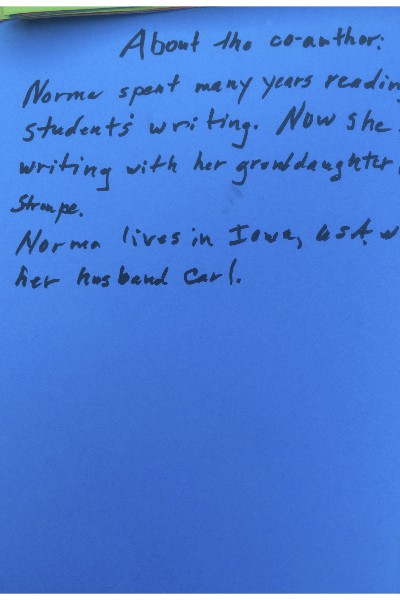 About the co-author:
Norma spent many years readin
students' writing. Now she
writing with her granddaughter
Stroupe.
Norma lives in Iowa, USA w
her husband Carl.